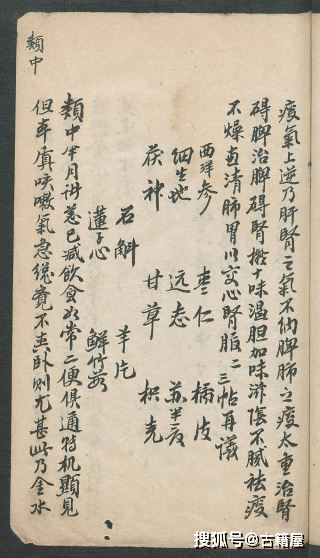 類中
痰氣上逆乃肝腎之氣不納脾肺之痰太重治腎
碍脾治脾碍腎擬十味溫胆加味滋陰不膩祛痰
不燥直清肺胃以交心腎脂二三帖再議
西洋參 棗仁 橘皮
細生地 远志 苏半夏
茯神 甘草 枳壳
石斛 羊片
蓮子心 鮮竹茹
類中半月計差已減飲食如常二便俱通特机顯見
但年虞咳嗽氣急纔竟不去卧則尤甚此乃金水
搜狐号@古籍屋